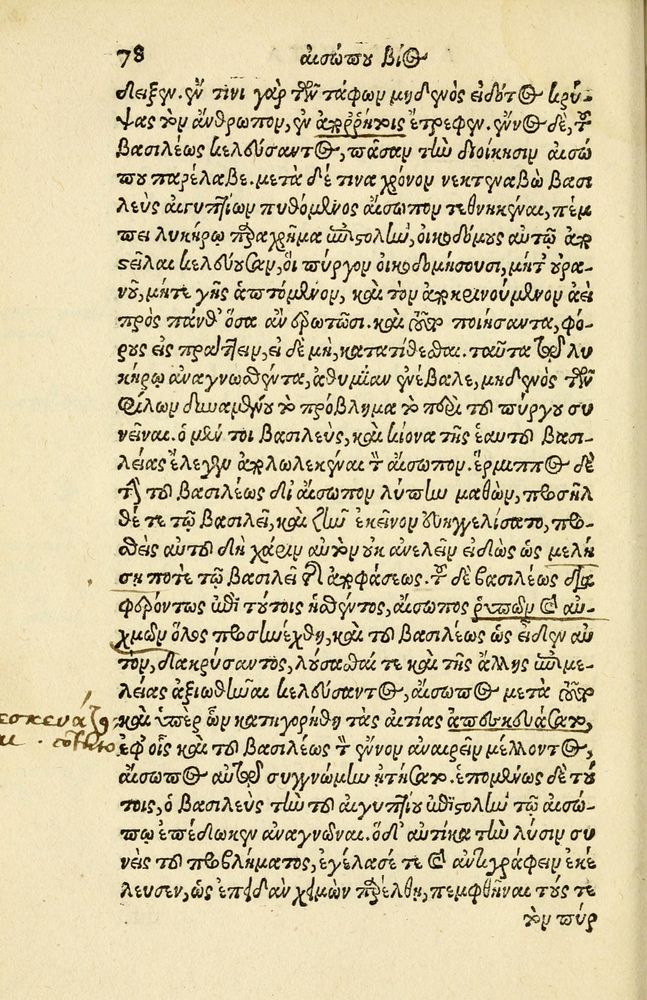 78 αἰσώπου βίος
δειξεν. ἔν τινι γὰρ τῶν τάφων μηδενὸς εἰδότος κρύ-
ψας τὸν ἄνθρωπον, ἐν ἀπορρήτοις ἔτρεφεν. ἔννος δὲ, τοῦ
βασιλέως κελεύσαντος, πᾶσαν τὴν διοίκησιν αἰσώ
που παρέλαβε. μετὰ δέ τινα χρόνον νεκτεναβὼ βασι
λεὺς αἰγυπτίων πυθόμενος αἴσωπον τεθνηκέναι, πέμ
πει λυκήρῳ παραχρῆμα ἐπιστολὴν, οἰκοδόμους αὐτῷ ἀπο
στεῖλαι κελεύουσαν, οἳ πύργον οἰκοδομήσουσι, μήτ' οὐρα-
νοῦ, μήτε γῆς ἁπτόμενον, καὶ τὸν ἀποκρινούμενον ἀεὶ
πρὸς πάνθ' ὅσα ἂν ἐρωτῶσι. καὶ τοῦτο ποιήσαντα, φό-
ρους εἰσπράττειν, εἰ δὲ μὴ, κατατίθεσθαι. ταῦτα τῷ λυ
κήρῳ ἀναγνωσθέντα, ἀθυμίαν ἐνέβαλε, μηδενὸς τῶν
φίλων δυναμένου τὸ πρόβλημα τὸ περὶ τοῦ πύργου συ
νεῖναι. ὁ μέν τοι βασιλεὺς, καὶ κίονα τῆς ἑαυτοῦ βασι-
λείας ἔλεγεν ἀπολωλεκέναι τὸν αἴσωπον. ἕρμιππος δὲ
τὴν τοῦ βασιλέως δι' αἴσωπον λύπην μαθὼν, προσῆλ
θέ τε τῷ βασιλεῖ, καὶ ζῆν ἐκεῖνον εὐηγγελίσατο, προσ-
θεὶς αὐτοῦ δὴ χάριν αὐτὸν οὐκ ἀνελεῖν εἰδὼς ὡς μελή
σῃ ποτὲ τῷ βασιλεῖ τῆς ἀποφάσεως. τοῦ δὲ βασιλέως δια
φερόντως ἐπὶ τούτοις ἡσθέντος, αἴσωπος ῥυπῶν καὶ αὐ-
χμῶν ὅλος προσηνέχθη, καὶ τοῦ βασιλέως ὡς εἶδεν αὐ
τὸν, δακρύσαντος, λούσασθαί τε καὶ τῆς ἄλλης ἐπιμε-
λείας ἀξιωθῆναι κελεύσαντος, αἴσωπος μετὰ τοῦτο
καὶ ὑπὲρ ὧν κατηγορήθη τὰς αἰτίας ἀπεσκευάσατο,
ἐφ' οἷς καὶ τοῦ βασιλέως τὸν ἔννον ἀναιρεῖν μέλλοντος,
αἴσωπος αὐτῷ συγγνώμην ᾐτήσατο. ἑπομένως δὲ τού
τοις, ὁ βασιλεὺς τὴν τοῦ αἰγυπτίου ἐπιστολὴν τῷ αἰσώ-
πῳ ἐπέδωκεν ἀναγνῶναι. ὁ δ' αὐτίκα τὴν λύσιν συ
νεὶς τοῦ προβλήματος, ἐγέλασέ τε καὶ ἀντιγράφειν ἐκέ
λευσεν, ὡς ἐπειδὰν χειμὼν παρέλθῃ, πεμφθῆναι τούς τε
τὸν πύρ